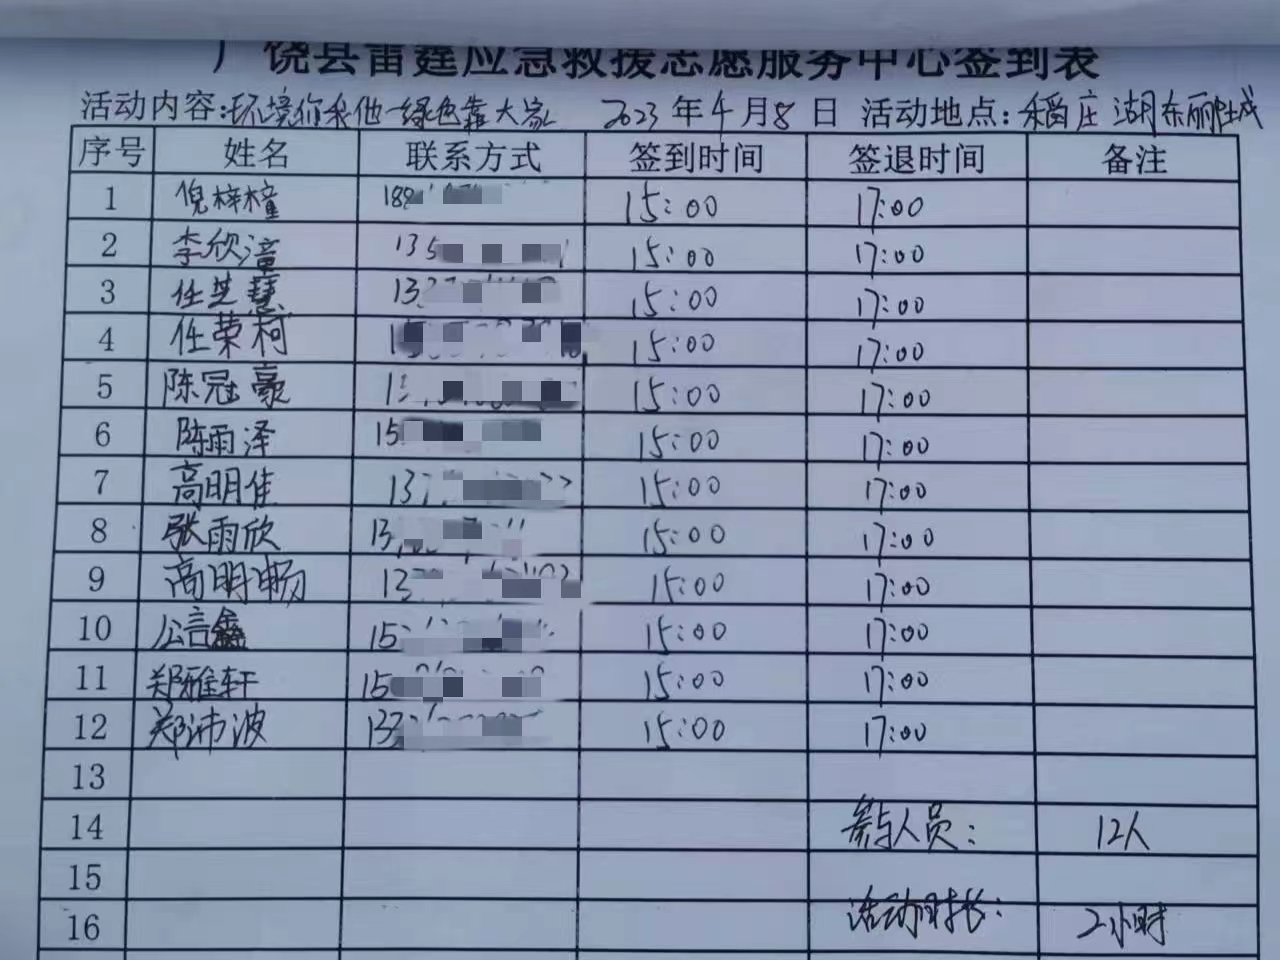 广饶县雷霆应急救援志愿服务中心签到表
活动内容:环境你我他一绿色靠大家 2023年4月8日 活动地点:稻庄湖东丽城
序号 姓名 联系方式 签到时间 签退时间 备注
1 倪梓橦 188 15:00 17:00
2 李欣潼 135 15:00 17:00
3 任芝慧 13 15:00 17:00
4 任荣柯 15:00 17:00
5 陈冠豪 15:00 17:00
6 陈雨泽 15 15:00 17:00
7 高明佳 137 15:00 17:00
8 张雨欣 13 15:00 17:00
9 高明畅 137 15:00 17:00
10 公言鑫 15 15:00 17:00
11 郑雅轩 15 15:00 17:00
12 郑沛波 133 15:00 17:00
13
14 参与人员: 12人
15
16 活动时长: 2小时